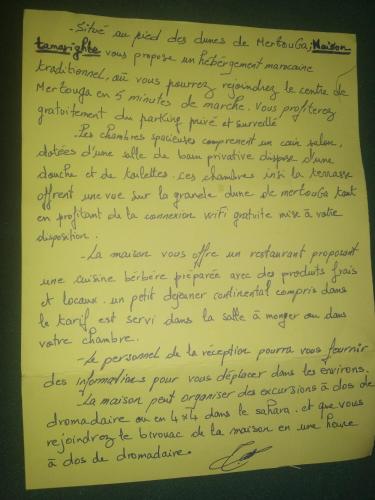 - Situé au pied des dunes de MertouGa, Maison
tamarighte vous propose un hébergement marocaine
traditionnel, où vous pourrez rejoindrez le centre de
Mertouga en 5 minutes de marche. Vous profiterez
gratuitement du parking privé et surveillé
- Les chambres spacieuses comprennent un coin salon,
dotées d'une salle de bain privative dispose d'une
douche et de toilettes. ces chambres insi la terrasse
offrent une vue sur la grande dune de mertouGa tout
en profitant de la connexion wifi gratuite mise à votre
disposition.
- La maison vous offre un restaurant proposant
une cuisine bérbère préparée avec des produits frais
et locaux. un petit déjeuner continental compris dans
le tarif est servi dans la salle à manger ou dans
votre chambre.
- Le personnel de la réception pourra vous fournir
des informations pour vous déplacer dans les environs.
La maison peut organiser des excursions à dos de
dromadaire ou en 4x4 dans le sahara. et que vous
rejoindrez le bivouac de la maison en une heure
à dos de dromadaire.